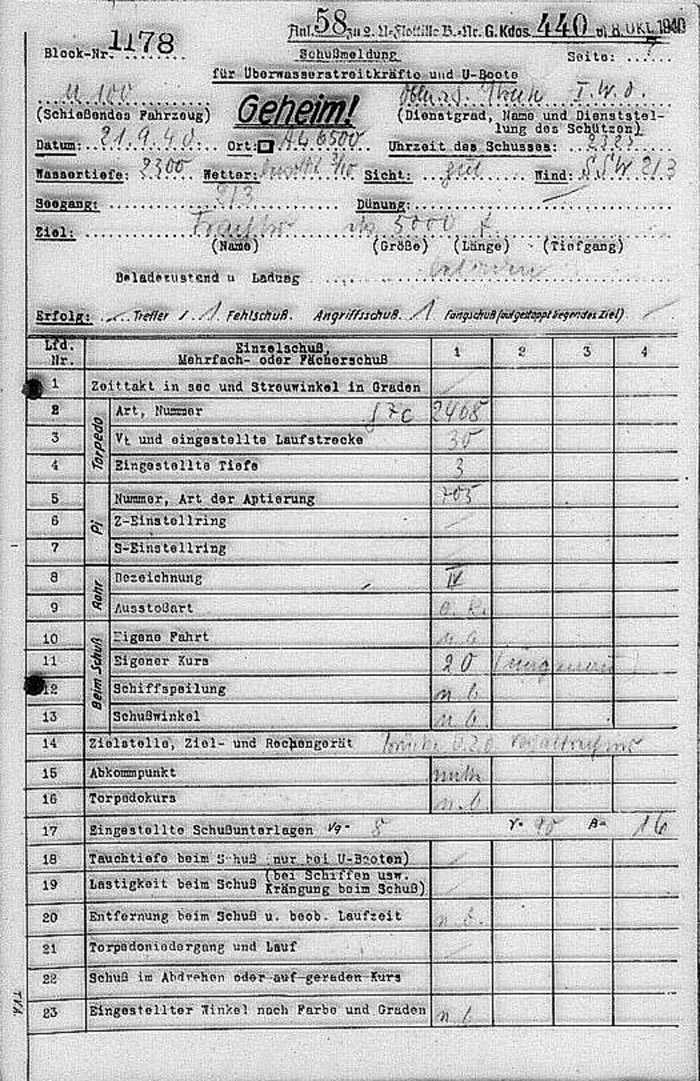 Anl. 58 zu 2. U-Flottille B.-Nr. G. Kdos. 440 v. 8. OKT. 1940
Block-Nr. 1178
Schußmeldung
Seite: 7
für Überwasserstreitkräfte und U-Boote
U 100
I. W. O.
(Schießendes Fahrzeug)
Geheim!
(Dienstgrad, Name und Dienststel-
lung des Schützen)
Datum: 21.9.40 Ort: AL 6500 Uhrzeit des Schusses: 2323
Wassertiefe: 2300 Wetter: 3/10 Sicht: gut Wind: SSW 2/3
Seegang: 2/3 Dünung:
Ziel: Frachter etw. 5000 t
(Name) (Größe) (Länge) (Tiefgang)
Beladezustand u Ladung beladen
Erfolg: Treffer / 1 Fehlschuß. Angriffsschuß. 1 Fangschuß (auf gestoppt liegendes Ziel)
Lfd. Nr. Einzelschuß, Mehrfach- oder Fächerschuß 1 2 3 4
1 Zeittakt in sec und Streuwinkel in Graden
Torpedo
2 Art, Nummer G7e 2408
3 Vt und eingestellte Laufstrecke 30
4 Eingestellte Tiefe 3
Pi
5 Nummer, Art der Aptierung 705
6 Z-Einstellring
7 S-Einstellring
Rohr
8 Bezeichnung IV
9 Ausstoßart
Beim Schuß
10 Eigene Fahrt
11 Eigener Kurs 20 (ungenau)
12 Schiffspeilung n. b.
13 Schußwinkel n. b.
14 Zielstelle, Ziel- und Rechengerät Brücke U.Z.O.
15 Abkommpunkt mitte
16 Torpedokurs n. b.
17 Eingestellte Schußunterlagen Vg= 8 γ= 90 B= 16
18 Tauchtiefe beim Schuß (nur bei U-Booten)
19 Lastigkeit beim Schuß (bei Schiffen usw. Krängung beim Schuß)
20 Entfernung beim Schuß u. beob. Laufzeit n. b.
21 Torpedoniedergang und Lauf
22 Schuß im Abdrehen oder auf geraden Kurs
23 Eingestellter Winkel nach Farbe und Graden n. b.